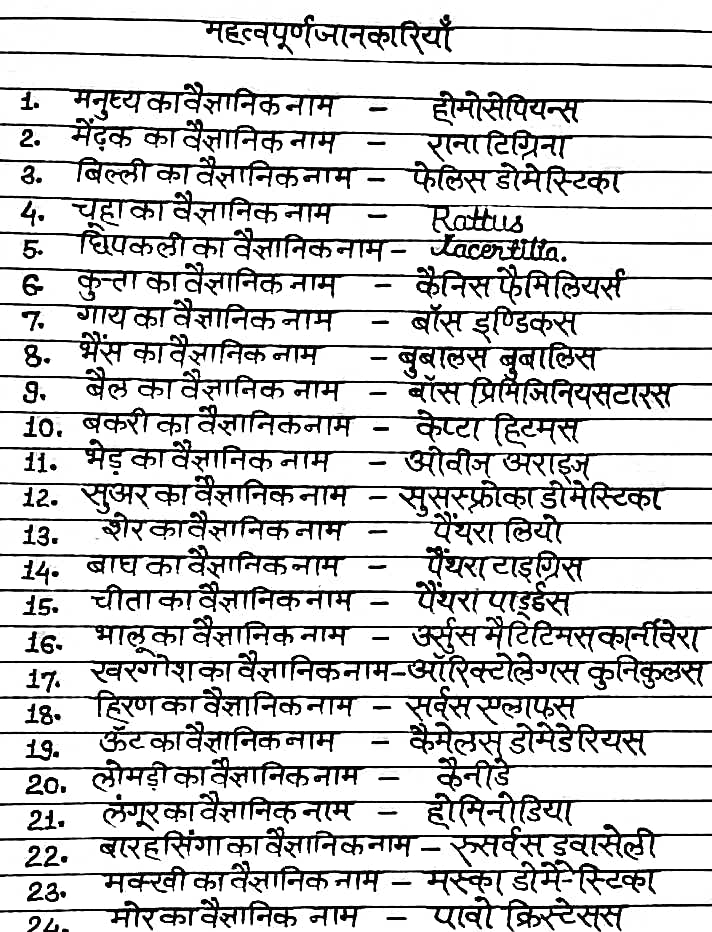 महत्वपूर्ण जानकारियाँ
1. मनुष्य का वैज्ञानिक नाम – होमोसेपियन्स
2. मेंढ़क का वैज्ञानिक नाम – राना टिग्रिना
3. बिल्ली का वैज्ञानिक नाम – फेलिस डोमेस्टिका
4. चूहा का वैज्ञानिक नाम – Rattus
5. छिपकली का वैज्ञानिक नाम – Lacertilia.
6. कुत्ता का वैज्ञानिक नाम – कैनिस फैमिलियर्स
7. गाय का वैज्ञानिक नाम – बॉस इण्डिकस
8. भैंस का वैज्ञानिक नाम – बुबालस बुबालिस
9. बैल का वैज्ञानिक नाम – बॉस प्रिमिजिनियस टारस
10. बकरी का वैज्ञानिक नाम – केप्टा हिटमस
11. भेड़ का वैज्ञानिक नाम – ओवीज अराइज
12. सुअर का वैज्ञानिक नाम – सुसस्फ्रोका डोमेस्टिका
13. शेर का वैज्ञानिक नाम – पैंथरा लियो
14. बाघ का वैज्ञानिक नाम – पैंथरा टाइग्रिस
15. चीता का वैज्ञानिक नाम – पैंथरा पार्ड्स
16. भालू का वैज्ञानिक नाम – उर्सुस मैटिटिमस कार्नीवेरा
17. खरगोश का वैज्ञानिक नाम – ऑरिक्टोलेगस कुनिकुलस
18. हिरण का वैज्ञानिक नाम – सर्वस एलाफस
19. ऊँट का वैज्ञानिक नाम – कैमेलस डोमेडेरियस
20. लोमड़ी का वैज्ञानिक नाम – कैनीडे
21. लंगूर का वैज्ञानिक नाम – होमिनोडिया
22. बारहसिंगा का वैज्ञानिक नाम – रुसर्वस डूवासेली
23. मक्खी का वैज्ञानिक नाम – मस्का डोमेस्टिका
24. मोर का वैज्ञानिक नाम – पावो क्रिस्टेसस